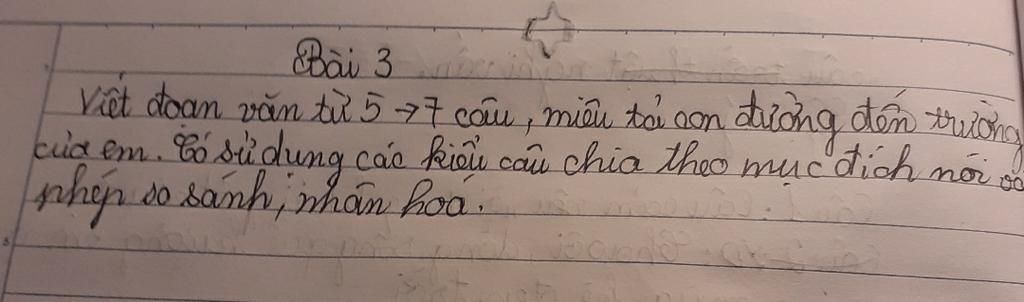 Bài 3
Viết đoạn văn từ 5 → 7 câu, miêu tả con đường đến trường
của em. Có sử dụng các kiểu câu chia theo mục đích nói có
phép so sánh, nhân hoá.